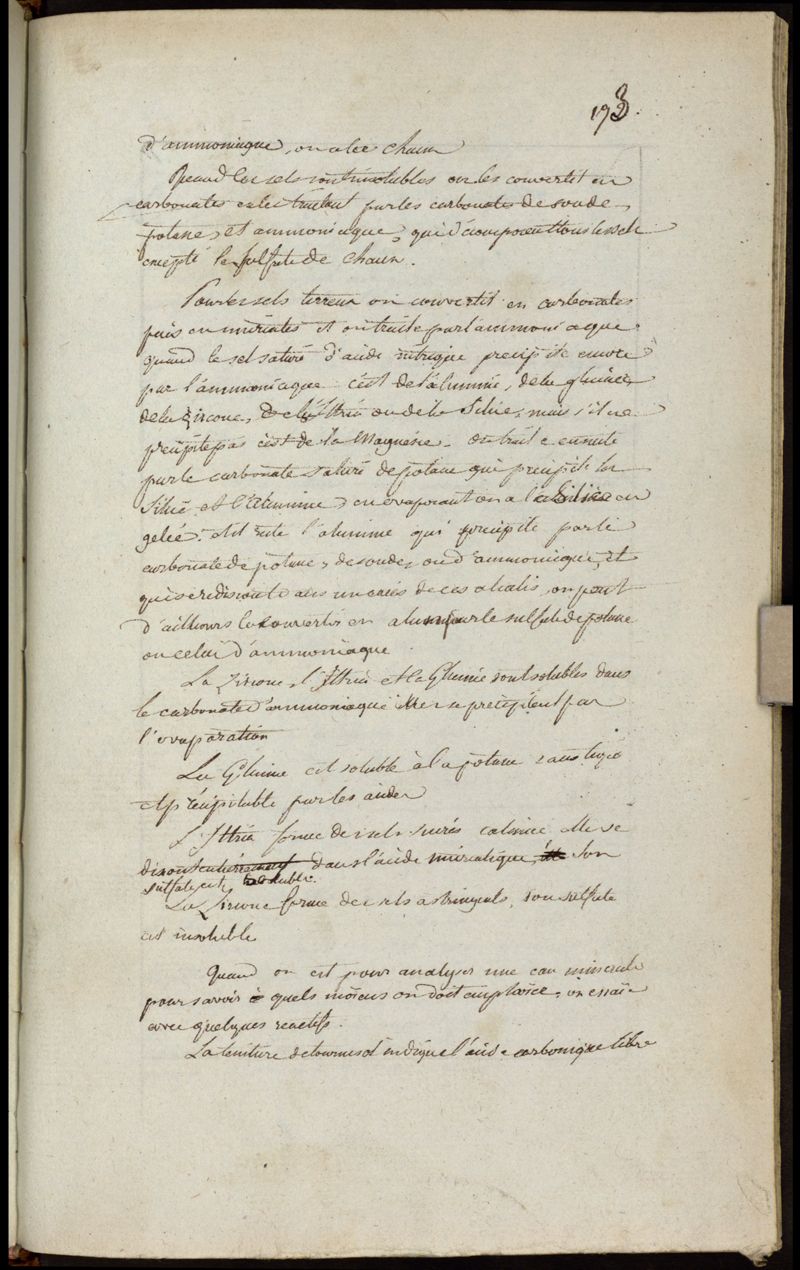 193.
d'ammoniaque, on a le chaux
Quand les sels sont insolubles on les convertit en
carbonates en les traitant par les carbonates de soude,
potasse, et ammoniaque, qui décomposent tous les sels
excepté le sulfate de chaux.
Pour les sels terreux on convertit en carbonates
puis en muriates et on traite par l'ammoniaque
quand le sel saturé d'acide nitrique precipite encore
par l'ammoniaque c'est de l'alumine, de la glucine
de la Zircone, de l'Ittria ou de la Silice, mais s'il ne
precipite pas c'est de la Magnésie. on traite ensuite
par le carbonate saturé de potasse qui precipite la
Silice et l'alumine, en evaporant on a la Silice en
gelée. et il reste l'alumine qui precipite par le
carbonate de potasse, de soude, ou d'ammoniaque, et
qui se redissout dans un excès de ces alcalis, on peut
d'ailleurs le convertir en alun par le sulfate de potasse
ou celui d'ammoniaque
La Zircone, l'Ittria et la Glucine sont solubles dans
le carbonate d'ammoniaque elles se precipitent par
l'evaporation
La Glucine est soluble à la potasse caustique
et précipitable par les acides
L'Ittria forme des sels sucrés calcinée elle se
dissout entièrement dans l'acide muriatique, son
sulfate est soluble.
La Zircone forme des sels astringents, son sulfate
est insoluble
Quand on est pour analyser une eau minerale
pour savoir quels moiens on doit emploier, on essaie
avec quelques reactifs.
La teinture de tournesol indique l'acide carbonique libre